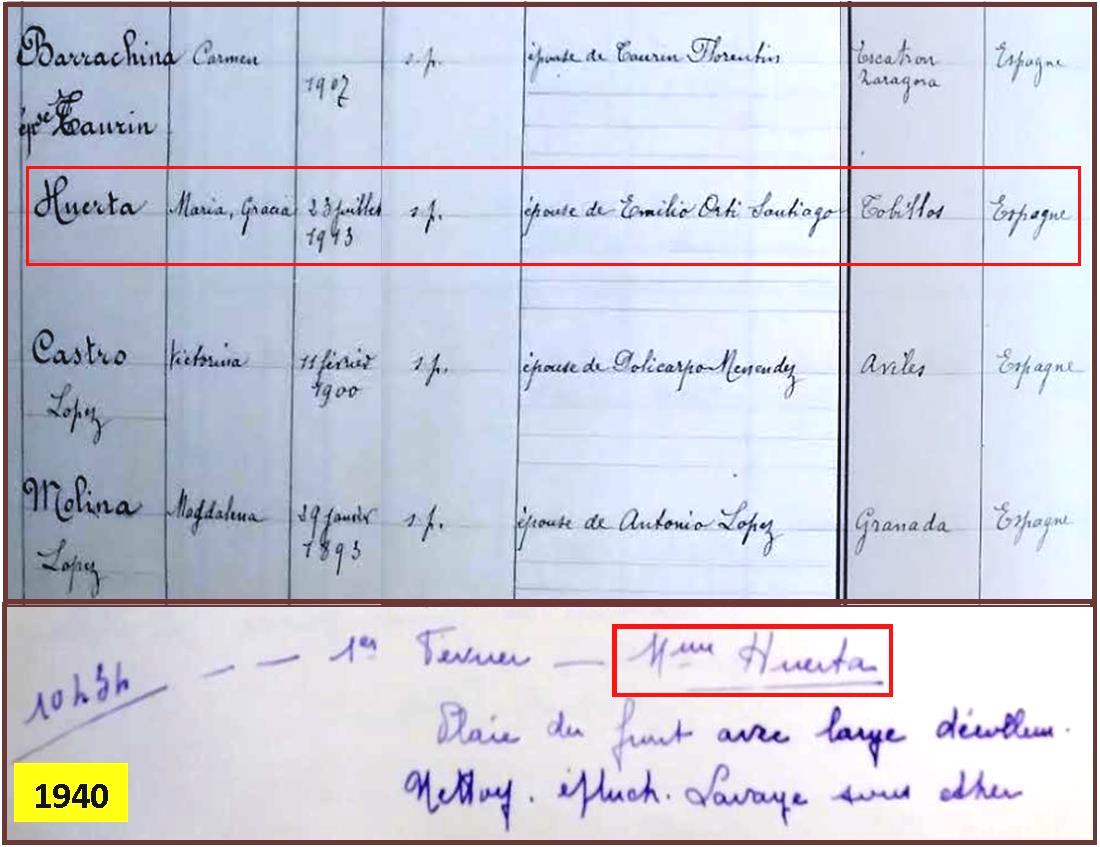 Barrachina Carmen 1907 s.p. épouse de Taurin Florentin Escatron Zaragosa Espagne
épse Taurin
Huerta Maria, Gracia 23 juillet 1913 s.p. épouse de Emilio Orti Santiago Tobillos Espagne
Castro Lopez Victorina 11 février 1900 s.p. épouse de Policarpo Menendez Aviles Espagne
Molina Lopez Magdalena 29 janvier 1893 s.p. épouse de Antonio Lopez Granada Espagne
1er Février — Mme Huerta
Plaie du front avec large décollem.
Nettoy. épluch. Lavage sous ether
1940